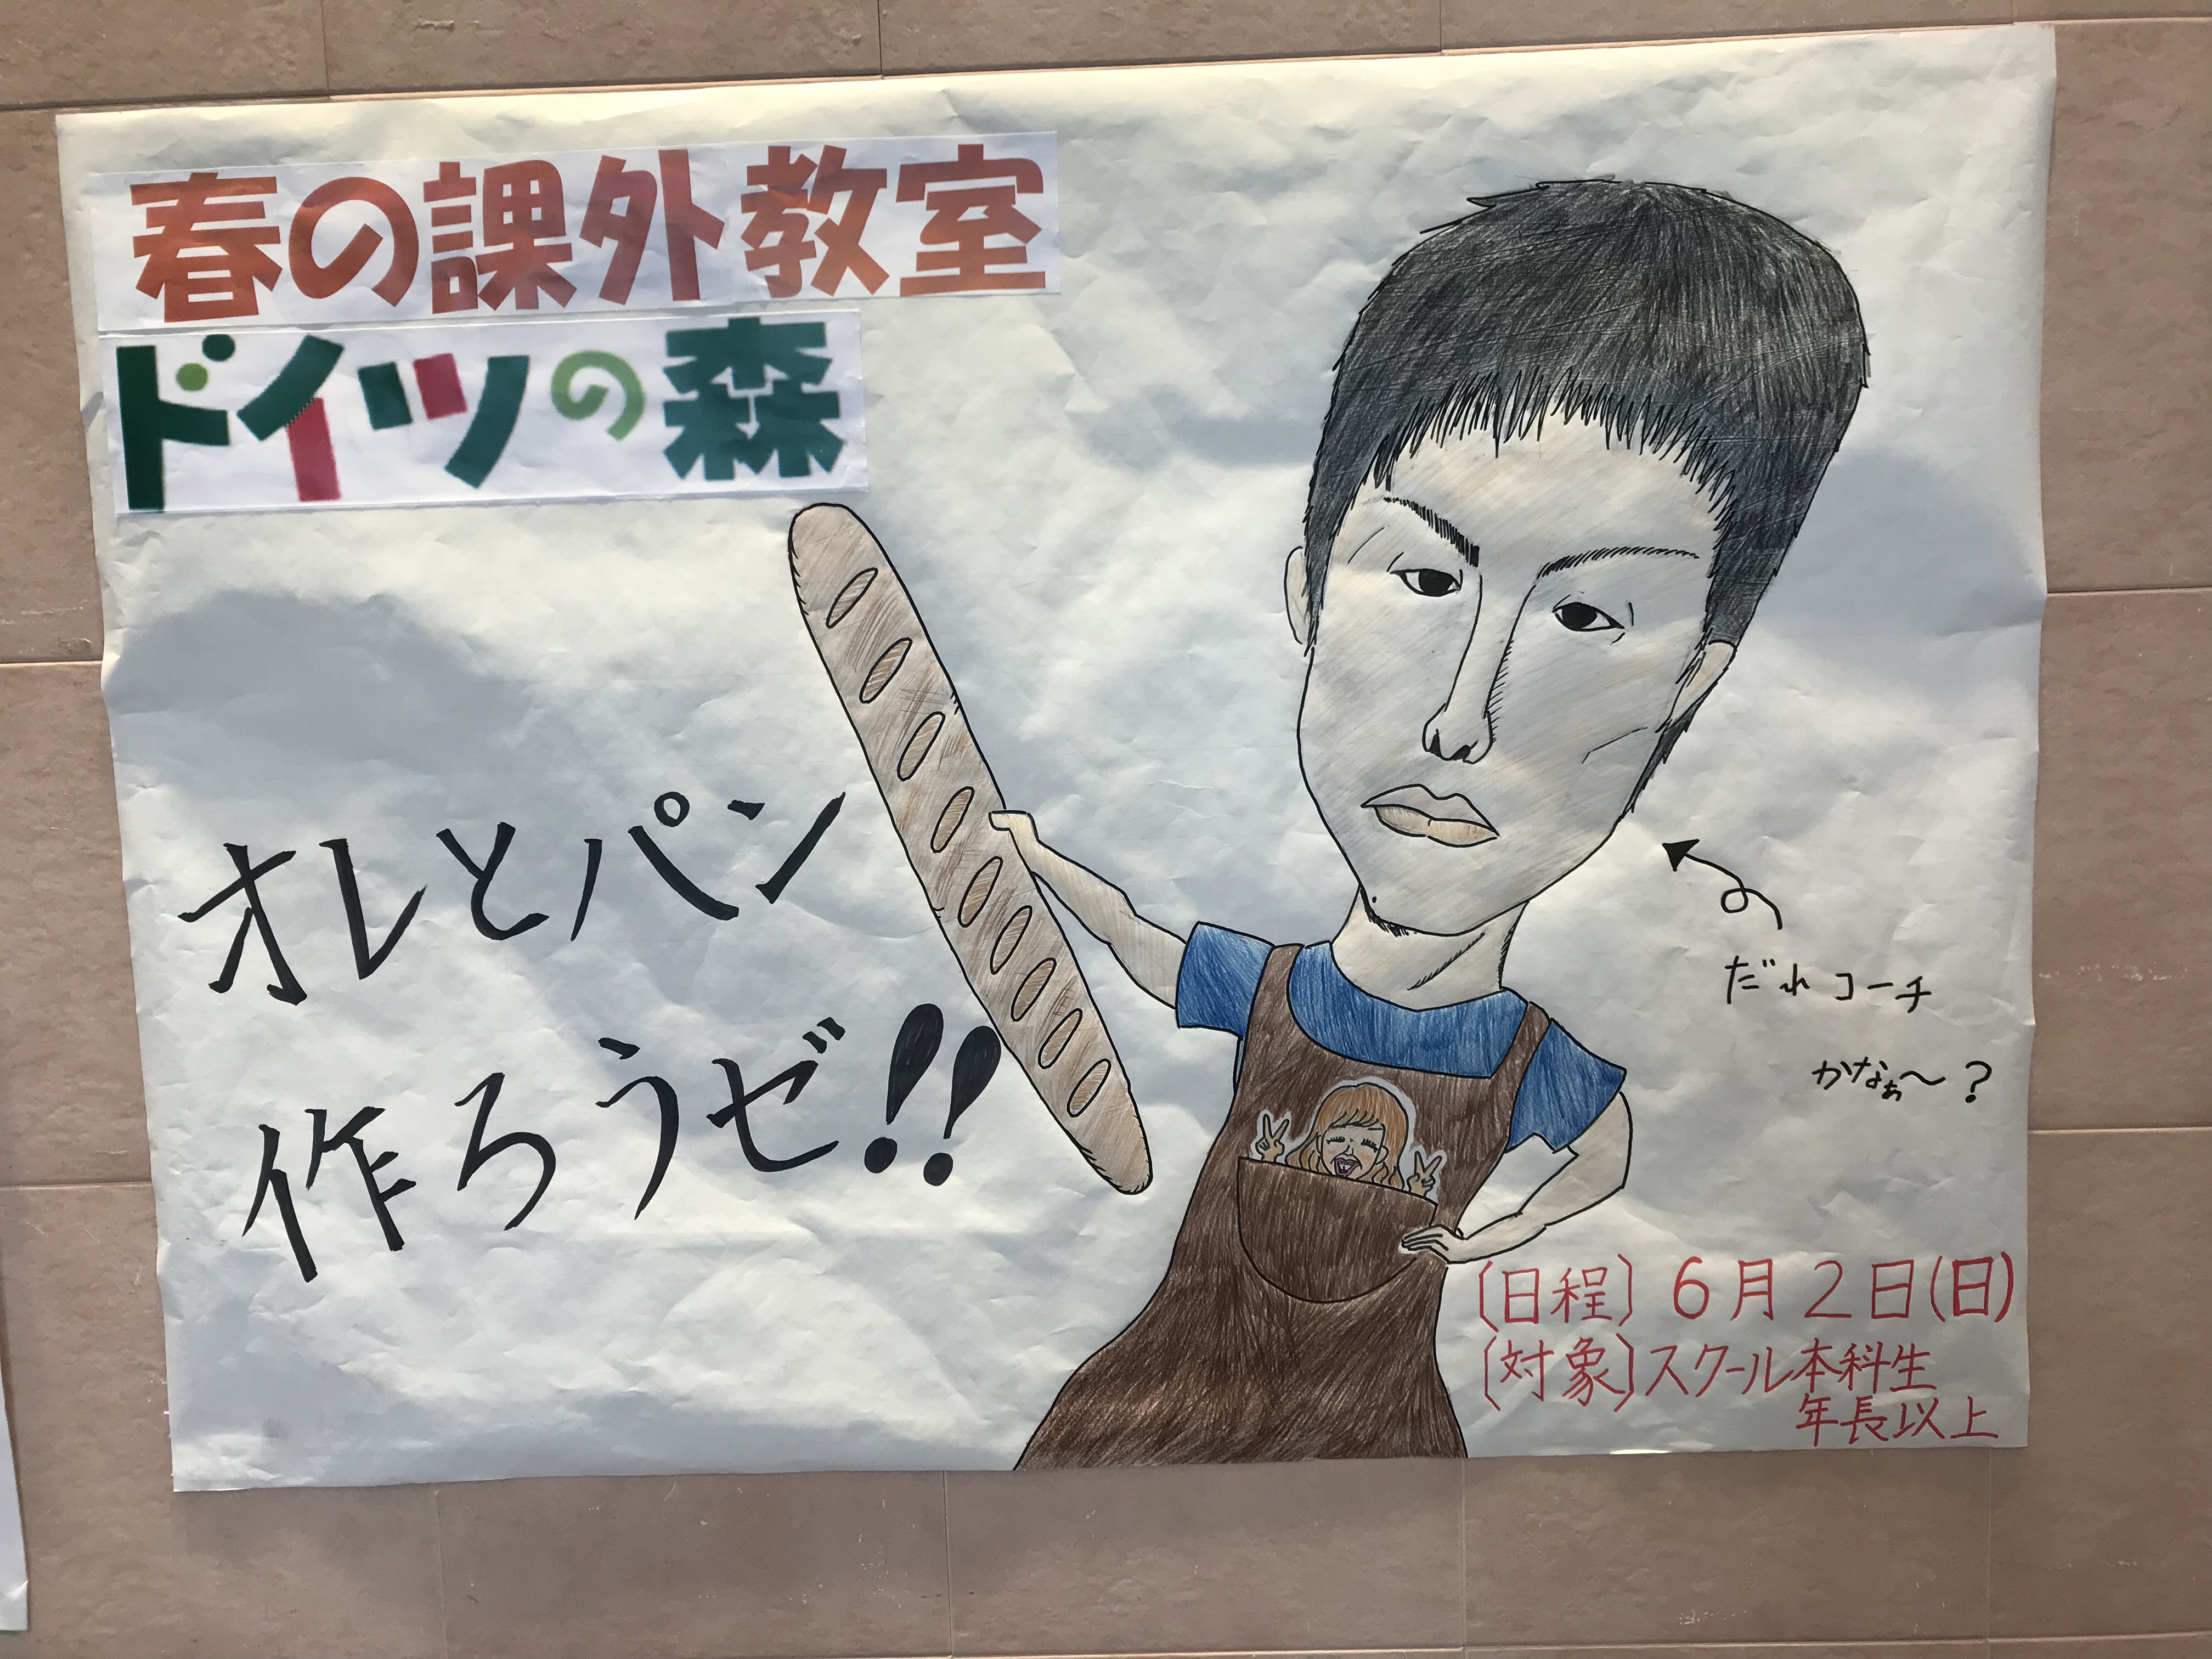 春の課外教室
ドイツの森
オレとパン
作ろうゼ!!
だれコーチ
かなぁ〜?
〔日程〕6月2日(日)
〔対象〕スクール本科生
年長以上